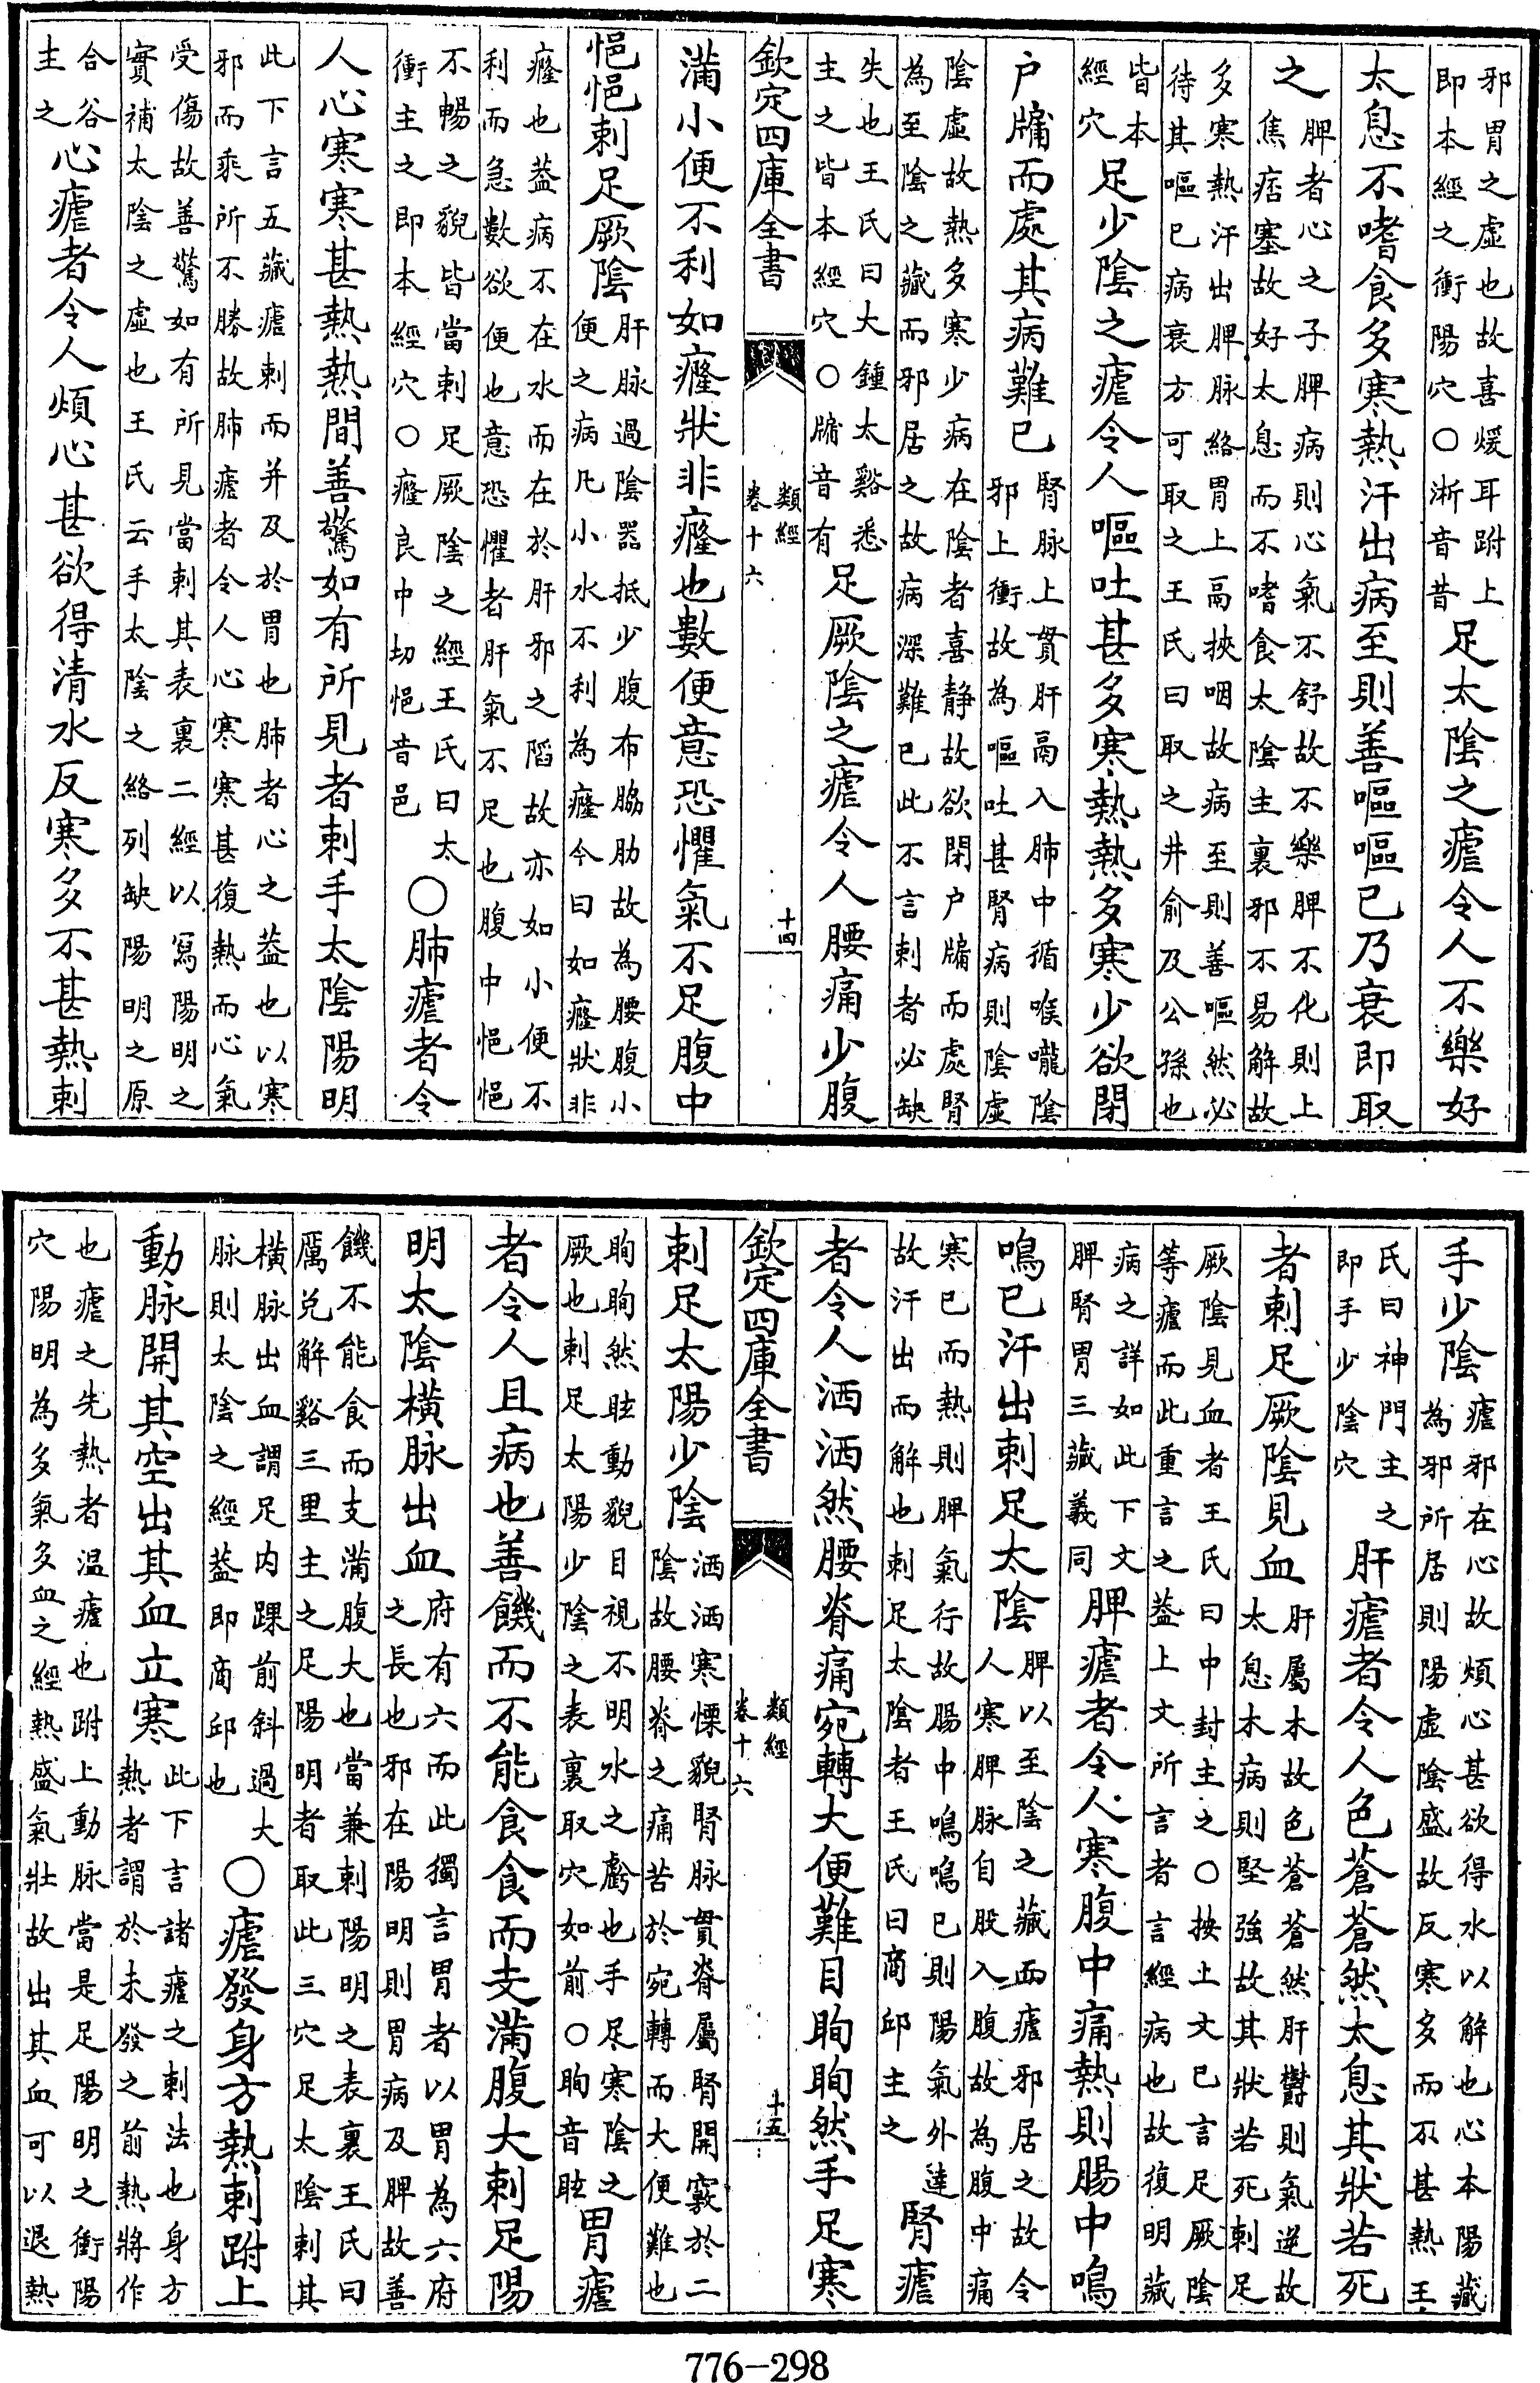 邪胃之虛也故喜煖耳跗上
即本經之衝陽穴○淅音昔
足太陰之瘧令人不樂好
太息不嗜食多寒熱汗出病至則善嘔嘔已乃衰即取
之
脾者心之子脾病則心氣不舒故不樂脾不化則上
焦痞塞故好太息而不嗜食太陰主裏邪不易解故
多寒熱汗出脾脉絡胃上鬲挾咽故病至則善嘔然必
待其嘔已病衰方可取之王氏曰取之井俞及公孫也
皆本
經穴
足少陰之瘧令人嘔吐甚多寒熱熱多寒少欲閉
户牖而處其病難已
腎脉上貫肝鬲入肺中循喉嚨陰
邪上衝故為嘔吐甚腎病則陰虛
陰虛故熱多寒少病在陰者喜靜故欲閉户牖而處腎
為至陰之藏而邪居之故病深難已此不言刺者必缺
失也王氏曰大鍾太谿悉
主之皆本經穴○牖音有
足厥陰之瘧令人腰痛少腹
欽定四庫全書
類經
卷十六
十四
滿小便不利如癃狀非癃也數便意恐懼氣不足腹中
悒悒刺足厥陰
肝脉過陰器抵少腹布脇肋故為腰腹小
便之病凡小水不利為癃今曰如癃狀非
癃也葢病不在水而在於肝邪之䧟故亦如小便不
利而急數欲便也意恐懼者肝氣不足也腹中悒悒
不暢之貌皆當刺足厥陰之經王氏曰太
衝主之即本經穴○癃良中切悒音邑
○肺瘧者令
人心寒寒甚熱熱間善驚如有所見者刺手太陰陽明
此下言五藏瘧刺而并及於胃也肺者心之葢也以寒
邪而乘所不勝故肺瘧者令人心寒寒甚復熱而心氣
受傷故善驚如有所見當刺其表裏二經以寫陽明之
實補太陰之虛也王氏云手太陰之絡列缺陽明之原
合谷
主之
心瘧者令人煩心甚欲得清水反寒多不甚熱刺
手少陰
瘧邪在心故煩心甚欲得水以解也心本陽藏
為邪所居則陽虛陰盛故反寒多而不甚熱王
氏曰神門主之
即手少陰穴
肝瘧者令人色蒼蒼然太息其狀若死
者刺足厥陰見血
肝屬木故色蒼蒼然肝鬱則氣逆故
太息木病則堅強故其狀若死刺足
厥陰見血者王氏曰中封主之○按上文已言足厥陰
等瘧而此重言之葢上文所言者言經病也故復明藏
病之詳如此下文
脾腎胃三藏義同
脾瘧者令人寒腹中痛熱則腸中鳴
鳴已汗出刺足太陰
脾以至陰之藏而瘧邪居之故令
人寒脾脉自股入腹故為腹中痛
寒已而熱則脾氣行故腸中鳴鳴已則陽氣外達
故汗出而解也刺足太陰者王氏曰商邱主之
腎瘧
者令人洒洒然腰脊痛宛轉大便難目眴眴然手足寒
欽定四庫全書
類經
卷十六
十五
刺足太陽少陰
洒洒寒慄貌腎脉貫脊屬腎開竅於二
陰故腰脊之痛苦於宛轉而大便難也
眴眴然眩動貌目視不明水之虧也手足寒陰之
厥也刺足太陽少陰之表裏取穴如前○眴音眩
胃瘧
者令人且病也善饑而不能食食而支滿腹大刺足陽
明太陰橫脉出血
府有六而此獨言胃者以胃為六府
之長也邪在陽明則胃病及脾故善
饑不能食而支滿腹大也當兼刺陽明之表裏王氏曰
厲兌解谿三里主之足陽明者取此三穴足太陰刺其
橫脉出血謂足内踝前斜過大
脉則太陰之經葢即商邱也
○瘧發身方熱刺跗上
動脉開其空出其血立寒
此下言諸瘧之刺法也身方
熱者謂於未發之前熱將作
也瘧之先熱者温瘧也跗上動脉當是足陽明之衝陽
穴陽明為多氣多血之經熱盛氣壯故出其血可以退熱
776-298